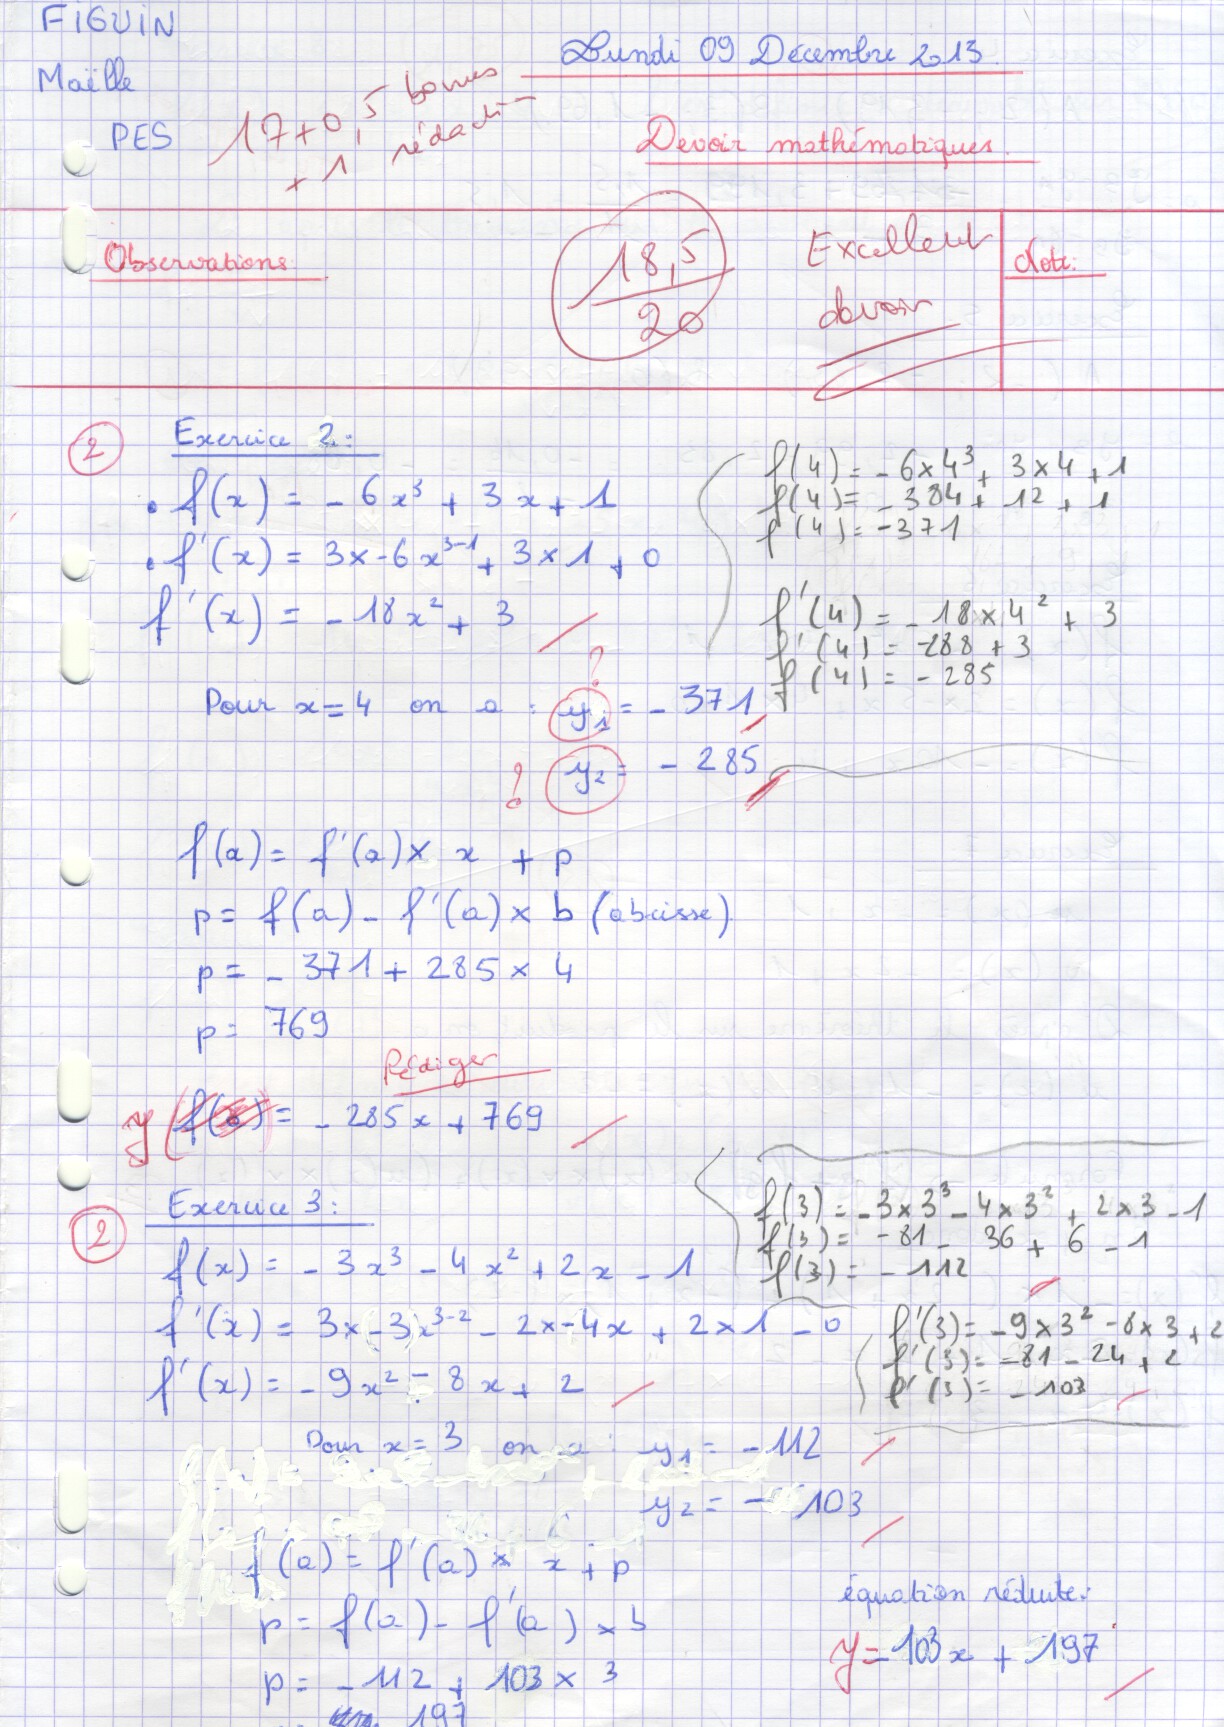 FIGUIN
Lundi 09 Décembre 2013.
Maëlle
PES
17+0,5 bonus
+ 1 rédaction
Devoir mathématiques.
Observations:
18,5
20
Excellent
devoir
Note:
2
Exercice 2:
• f(x) = - 6x³ + 3x + 1
• f'(x) = 3x-6x³⁻¹ + 3×1 + 0
f'(x) = - 18x² + 3
f(4) = - 6×4³ + 3×4 + 1
f(4) = - 384 + 12 + 1
f(4) = -371
f'(4) = - 18×4² + 3
f'(4) = -288 + 3
f'(4) = - 285
?
Pour x=4 on a : y₁ = - 371
? y₂ = - 285
f(a) = f'(a)× x + p
p = f(a) - f'(a) × b (abcisse)
p = - 371 + 285 × 4
p = 769
Rédiger
y f(x) = - 285x + 769
2
Exercice 3:
f(x) = - 3x³ - 4x² + 2x - 1
f'(x) = 3x-3x³⁻² - 2x-4x + 2×1 - 0
f'(x) = - 9x² - 8x + 2
f(3) = -3×3³ - 4×3² + 2×3 - 1
f(3) = - 81 - 36 + 6 - 1
f(3) = - 112
f'(3) = -9×3² - 8×3 + 2
f'(3) = -81 - 24 + 2
f'(3) = - 103
Pour x = 3 on a : y₁ = - 112
y₂ = - 103
f(a) = f'(a) × x + p
p = f(a) - f'(a) × b
p = - 112 + 103 × 3
197
équation réduite:
y = -103x + 197